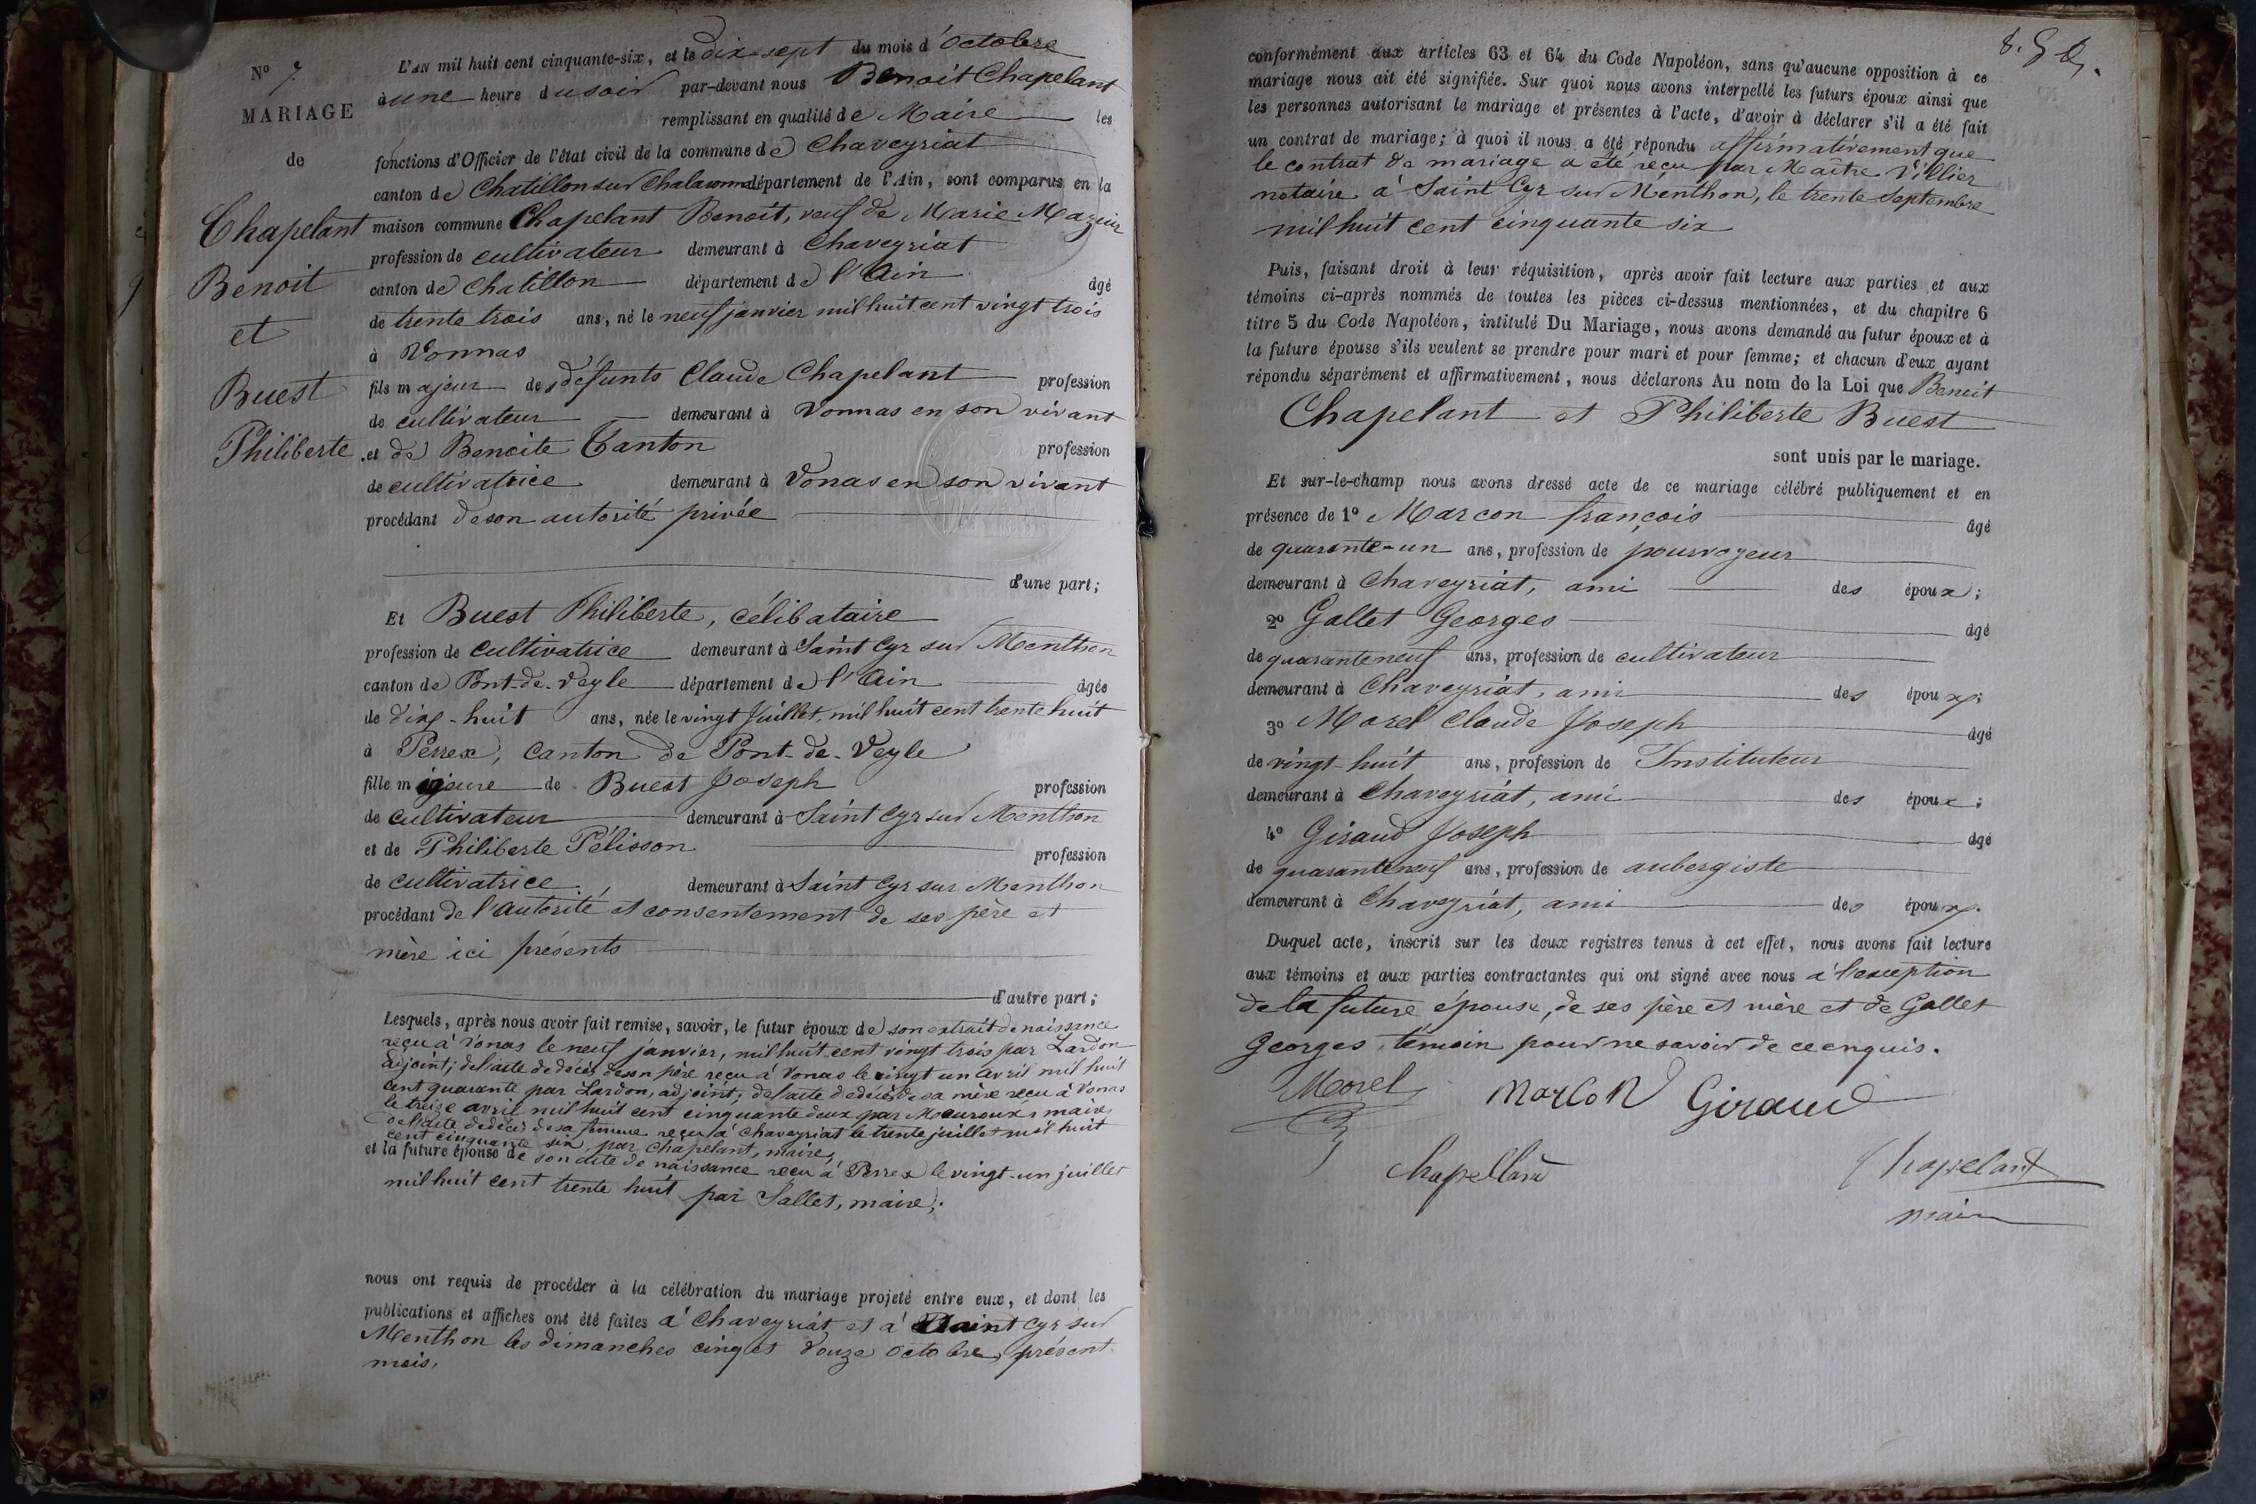 N° 7
MARIAGE
de
Chapelant
Benoit
et
Buest
Philiberte
L'AN mil huit cent cinquante-six, et le dix-sept du mois d'Octobre
à une heure du soir par-devant nous Benoit Chapelant
remplissant en qualité de Maire les
fonctions d'Officier de l'état civil de la commune de Chaveyriat
canton de Chatillon sur Chalaronne département de l'Ain, sont comparus en la
maison commune Chapelant Benoit, veuf de Marie Mazuir
profession de cultivateur demeurant à Chaveyriat
canton de Chatillon département de l'Ain âgé
de trente trois ans, né le neuf janvier mil huit cent vingt trois
à Vonnas
fils majeur de défunts Claude Chapelant profession
de cultivateur demeurant à Vonnas en son vivant
et de Benoite Tanton profession
de cultivatrice demeurant à Vonas en son vivant
procédant de son autorité privée
d'une part;
Et Buest Philiberte, célibataire
profession de cultivatrice demeurant à Saint Cyr sur Menthon
canton de Pont-de-Veyle département de l'Ain âgée
de dix-huit ans, née le vingt Juillet, mil huit cent trente huit
à Perrex, canton de Pont-de-Veyle
fille mineure de Buest Joseph profession
de cultivateur demeurant à Saint Cyr sur Menthon
et de Philiberte Pélisson profession
de cultivatrice demeurant à Saint Cyr sur Menthon
procédant de l'autorité et consentement de ses père et
mère ici présents
d'autre part;
Lesquels, après nous avoir fait remise, savoir, le futur époux de son extrait de naissance
reçu à Vonas le neuf janvier, mil huit cent vingt trois par Lardon
adjoint; de l'acte de décès de son père reçu à Vonas le vingt un avril mil huit
cent quarante par Lardon, adjoint; de l'acte de décès de sa mère reçu à Vonas
le treize avril mil huit cent cinquante deux par Mouroux, maire,
de l'acte de décès de sa femme reçu à Chaveyriat le trente juillet mil huit
cent cinquante six par Chapelant, maire,
et la future épouse de son acte de naissance reçu à Perrex le vingt-un juillet
mil huit cent trente huit par Sallet, maire;
nous ont requis de procéder à la célébration du mariage projeté entre eux, et dont les
publications et affiches ont été faites à Chaveyriat et à Saint Cyr sur
Menthon les dimanches cinq et douze octobre, présent
mois,
conformément aux articles 63 et 64 du Code Napoléon, sans qu'aucune opposition à ce
mariage nous ait été signifiée. Sur quoi nous avons interpellé les futurs époux ainsi que
les personnes autorisant le mariage et présentes à l'acte, d'avoir à déclarer s'il a été fait
un contrat de mariage; à quoi il nous a été répondu affirmativement que
le contrat de mariage a été reçu par Maître Villier
notaire à Saint Cyr sur Menthon, le trente septembre
mil huit cent cinquante six
Puis, faisant droit à leur réquisition, après avoir fait lecture aux parties et aux
témoins ci-après nommés de toutes les pièces ci-dessus mentionnées, et du chapitre 6
titre 5 du Code Napoléon, intitulé Du Mariage, nous avons demandé au futur époux et à
la future épouse s'ils veulent se prendre pour mari et pour femme; et chacun d'eux ayant
répondu séparément et affirmativement, nous déclarons Au nom de la Loi que Benoit
Chapelant et Philiberte Buest
sont unis par le mariage.
Et sur-le-champ nous avons dressé acte de ce mariage célébré publiquement et en
présence de 1° Marcon françois âgé
de quarante-un ans, profession de pourvoyeur
demeurant à Chaveyriat, ami des époux;
2° Gallet Georges âgé
de quaranteneuf ans, profession de cultivateur
demeurant à Chaveyriat, ami des époux;
3° Morel Claude Joseph âgé
de vingt-huit ans, profession de Instituteur
demeurant à Chaveyriat, ami des époux;
4° Giraud Joseph âgé
de quaranteneuf ans, profession de aubergiste
demeurant à Chaveyriat, ami des époux.
Duquel acte, inscrit sur les deux registres tenus à cet effet, nous avons fait lecture
aux témoins et aux parties contractantes qui ont signé avec nous à l'exception
de la future épouse, de ses père et mère et de Gallet
Georges, témoin pour ne savoir de ce enquis.
Morel Marcon Giraud
Chapellan Chapelant
maire